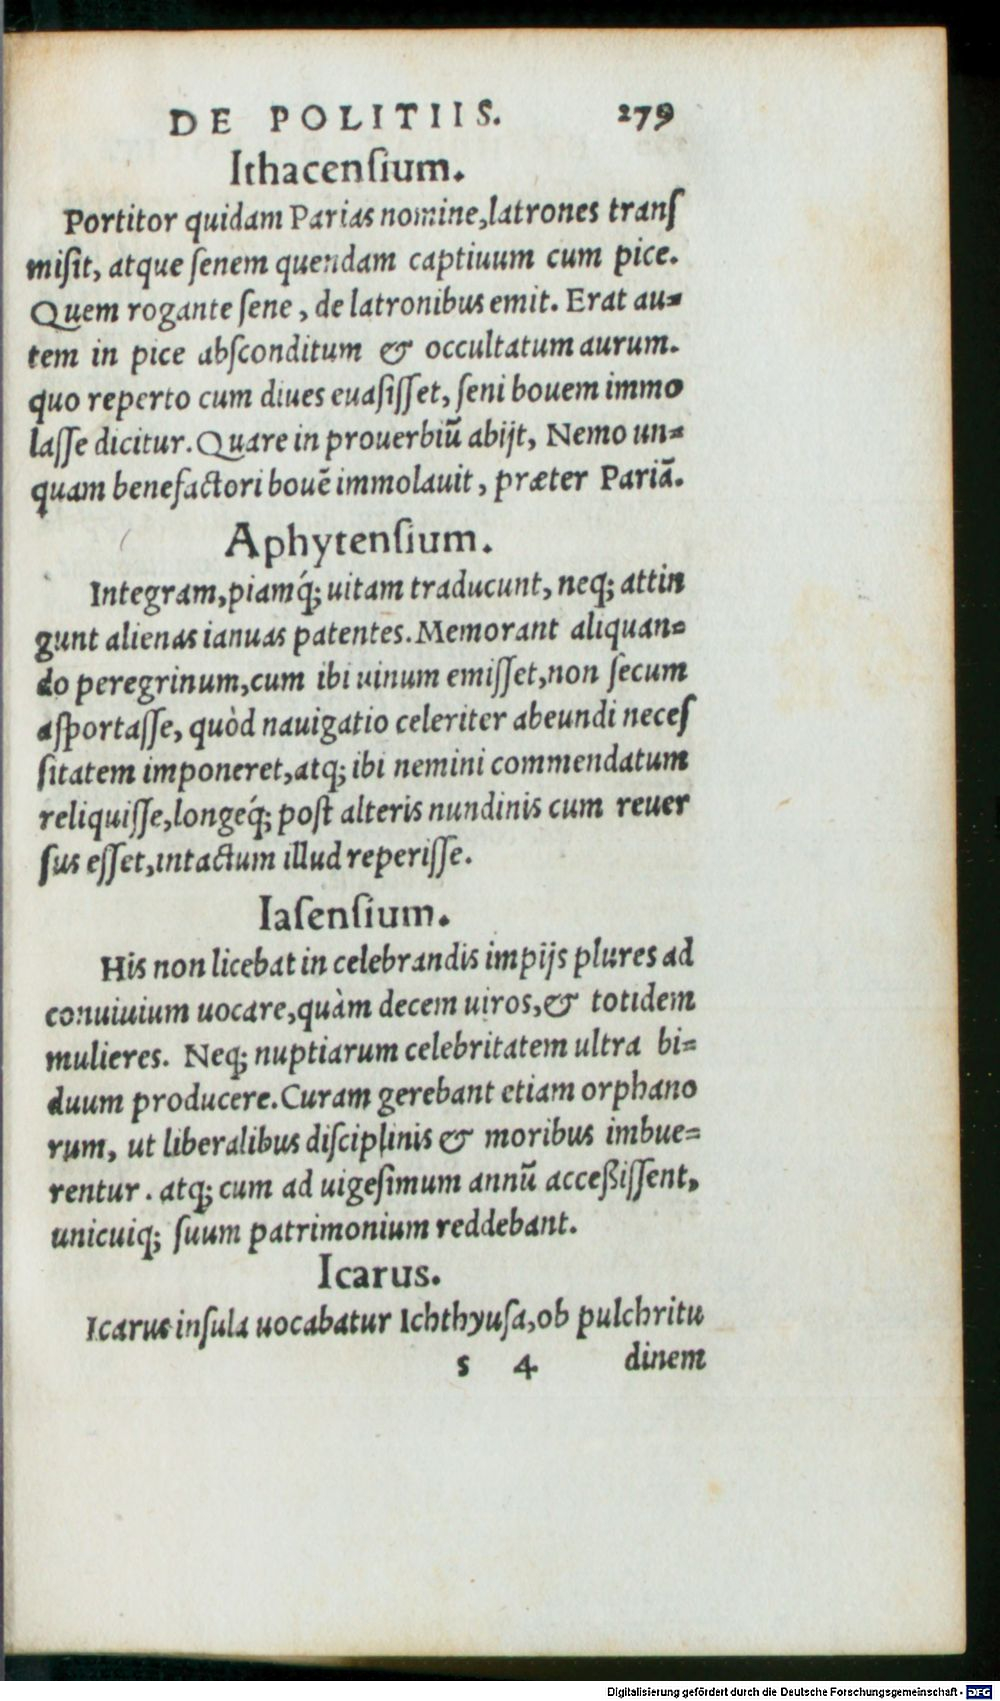 DE POLITIIS. 279
Ithacenſium.
Portitor quidam Parias nomine,latrones tranſ
miſit, atque ſenem quendam captiuum cum pice.
Quem rogante ſene, de latronibus emit. Erat au⸗
tem in pice abſconditum & occultatum aurum.
quo reperto cum diues euaſiſſet, ſeni bouem immo
laſſe dicitur. Quare in prouerbiũ abijt, Nemo un⸗
quam benefactori bouẽ immolauit, præter Pariã.
Aphytenſium.
Integram,piamq́; uitam traducunt, neq; attin
gunt alienas ianuas patentes. Memorant aliquan⸗
do peregrinum,cum ibi uinum emiſſet,non ſecum
aſportaſſe, quòd nauigatio celeriter abeundi neceſ
ſitatem imponeret,atq; ibi nemini commendatum
reliquiſſe,longeq́; poſt alteris nundinis cum reuer
ſus eſſet,intactum illud reperiſſe.
Iaſenſium.
His non licebat in celebrandis impijs plures ad
conuiuium uocare,quàm decem uiros,& totidem
mulieres. Neq; nuptiarum celebritatem ultra bi⸗
duum producere. Curam gerebant etiam orphano
rum, ut liberalibus diſciplinis & moribus imbue⸗
rentur. atq; cum ad uigeſimum annũ acceßiſſent,
unicuiq; ſuum patrimonium reddebant.
Icarus.
Icarus inſula uocabatur Ichthyuſa,ob pulchritu
s 4 dinem
Digitalisierung gefördert durch die Deutsche Forschungsgemeinschaft - DFG